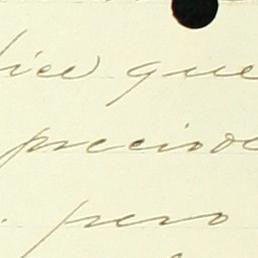 dice que
preciode
. pero